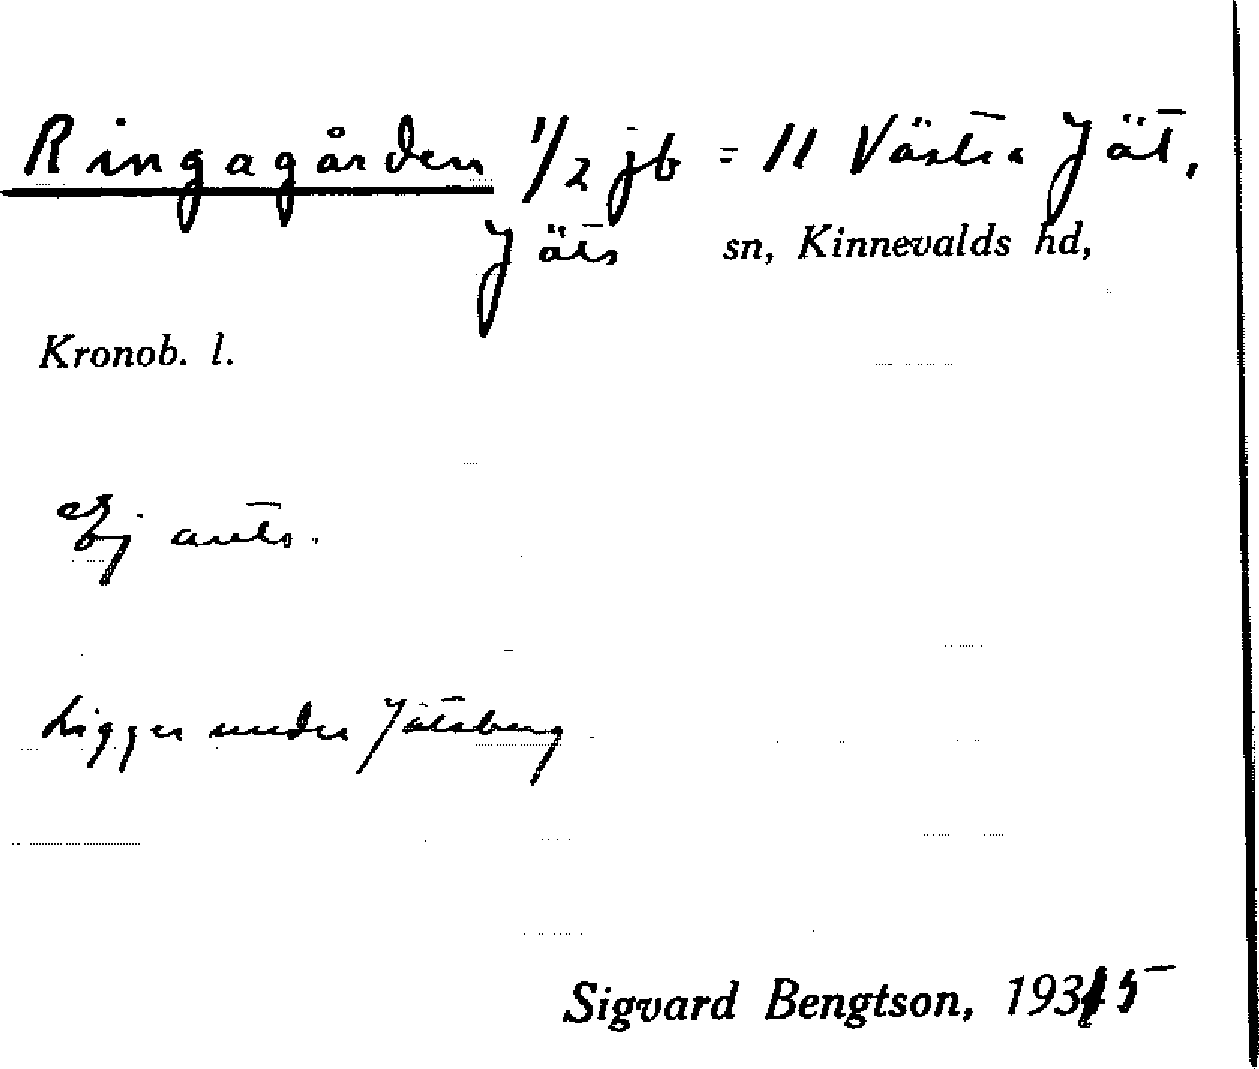 Ringagården 1/2 jb = 11 Västra Jät,
Jäts sn, Kinnevalds hd,
Kronob. l.
Ej auto.
Ligger under Jätsberg
Sigvard Bengtson, 1935